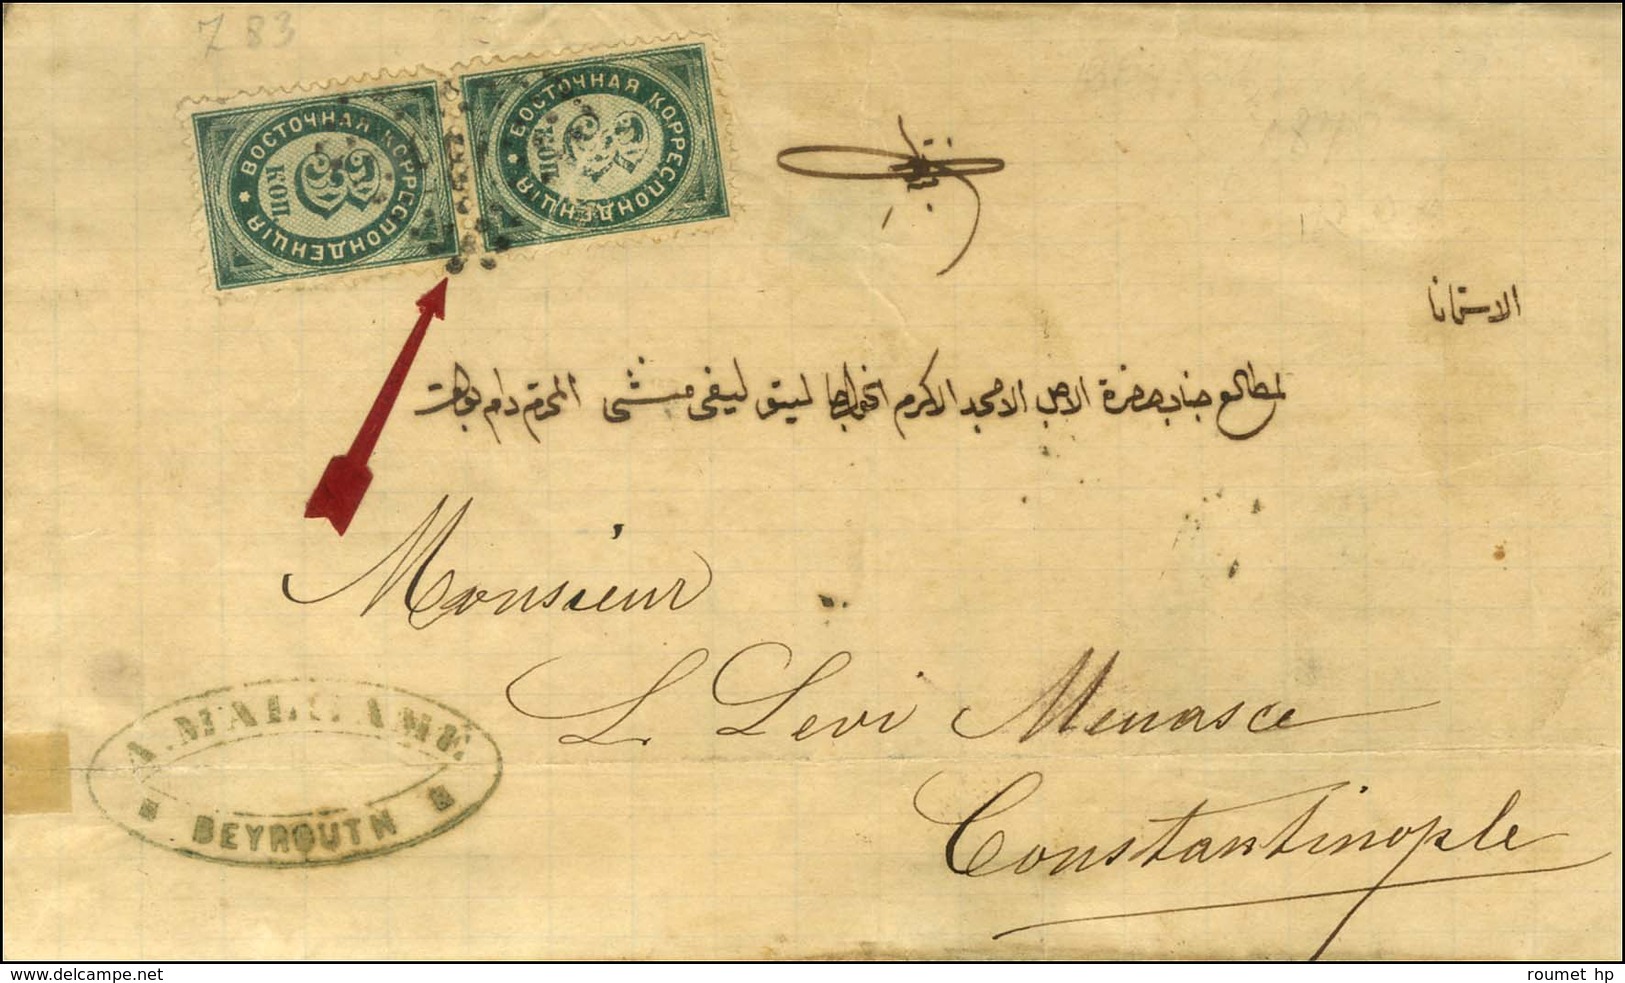 Z 83
ВОСТОЧНАЯ КОРРЕСПОНДЕНЦІЯ
3
КОП
ВОСТОЧНАЯ КОРРЕСПОНДЕНЦІЯ
3
КОП
الاستانا
لمطالع جناب حضرة الاجل الامجد الاكرم الخواجا ليتو ليفي منشى المحترم دام بقاه
Monsieur
L. Levi Menasce
Constantinople
A. MALGAMÉ
BEYROUTH
www.delcampe.net
roumet_hp